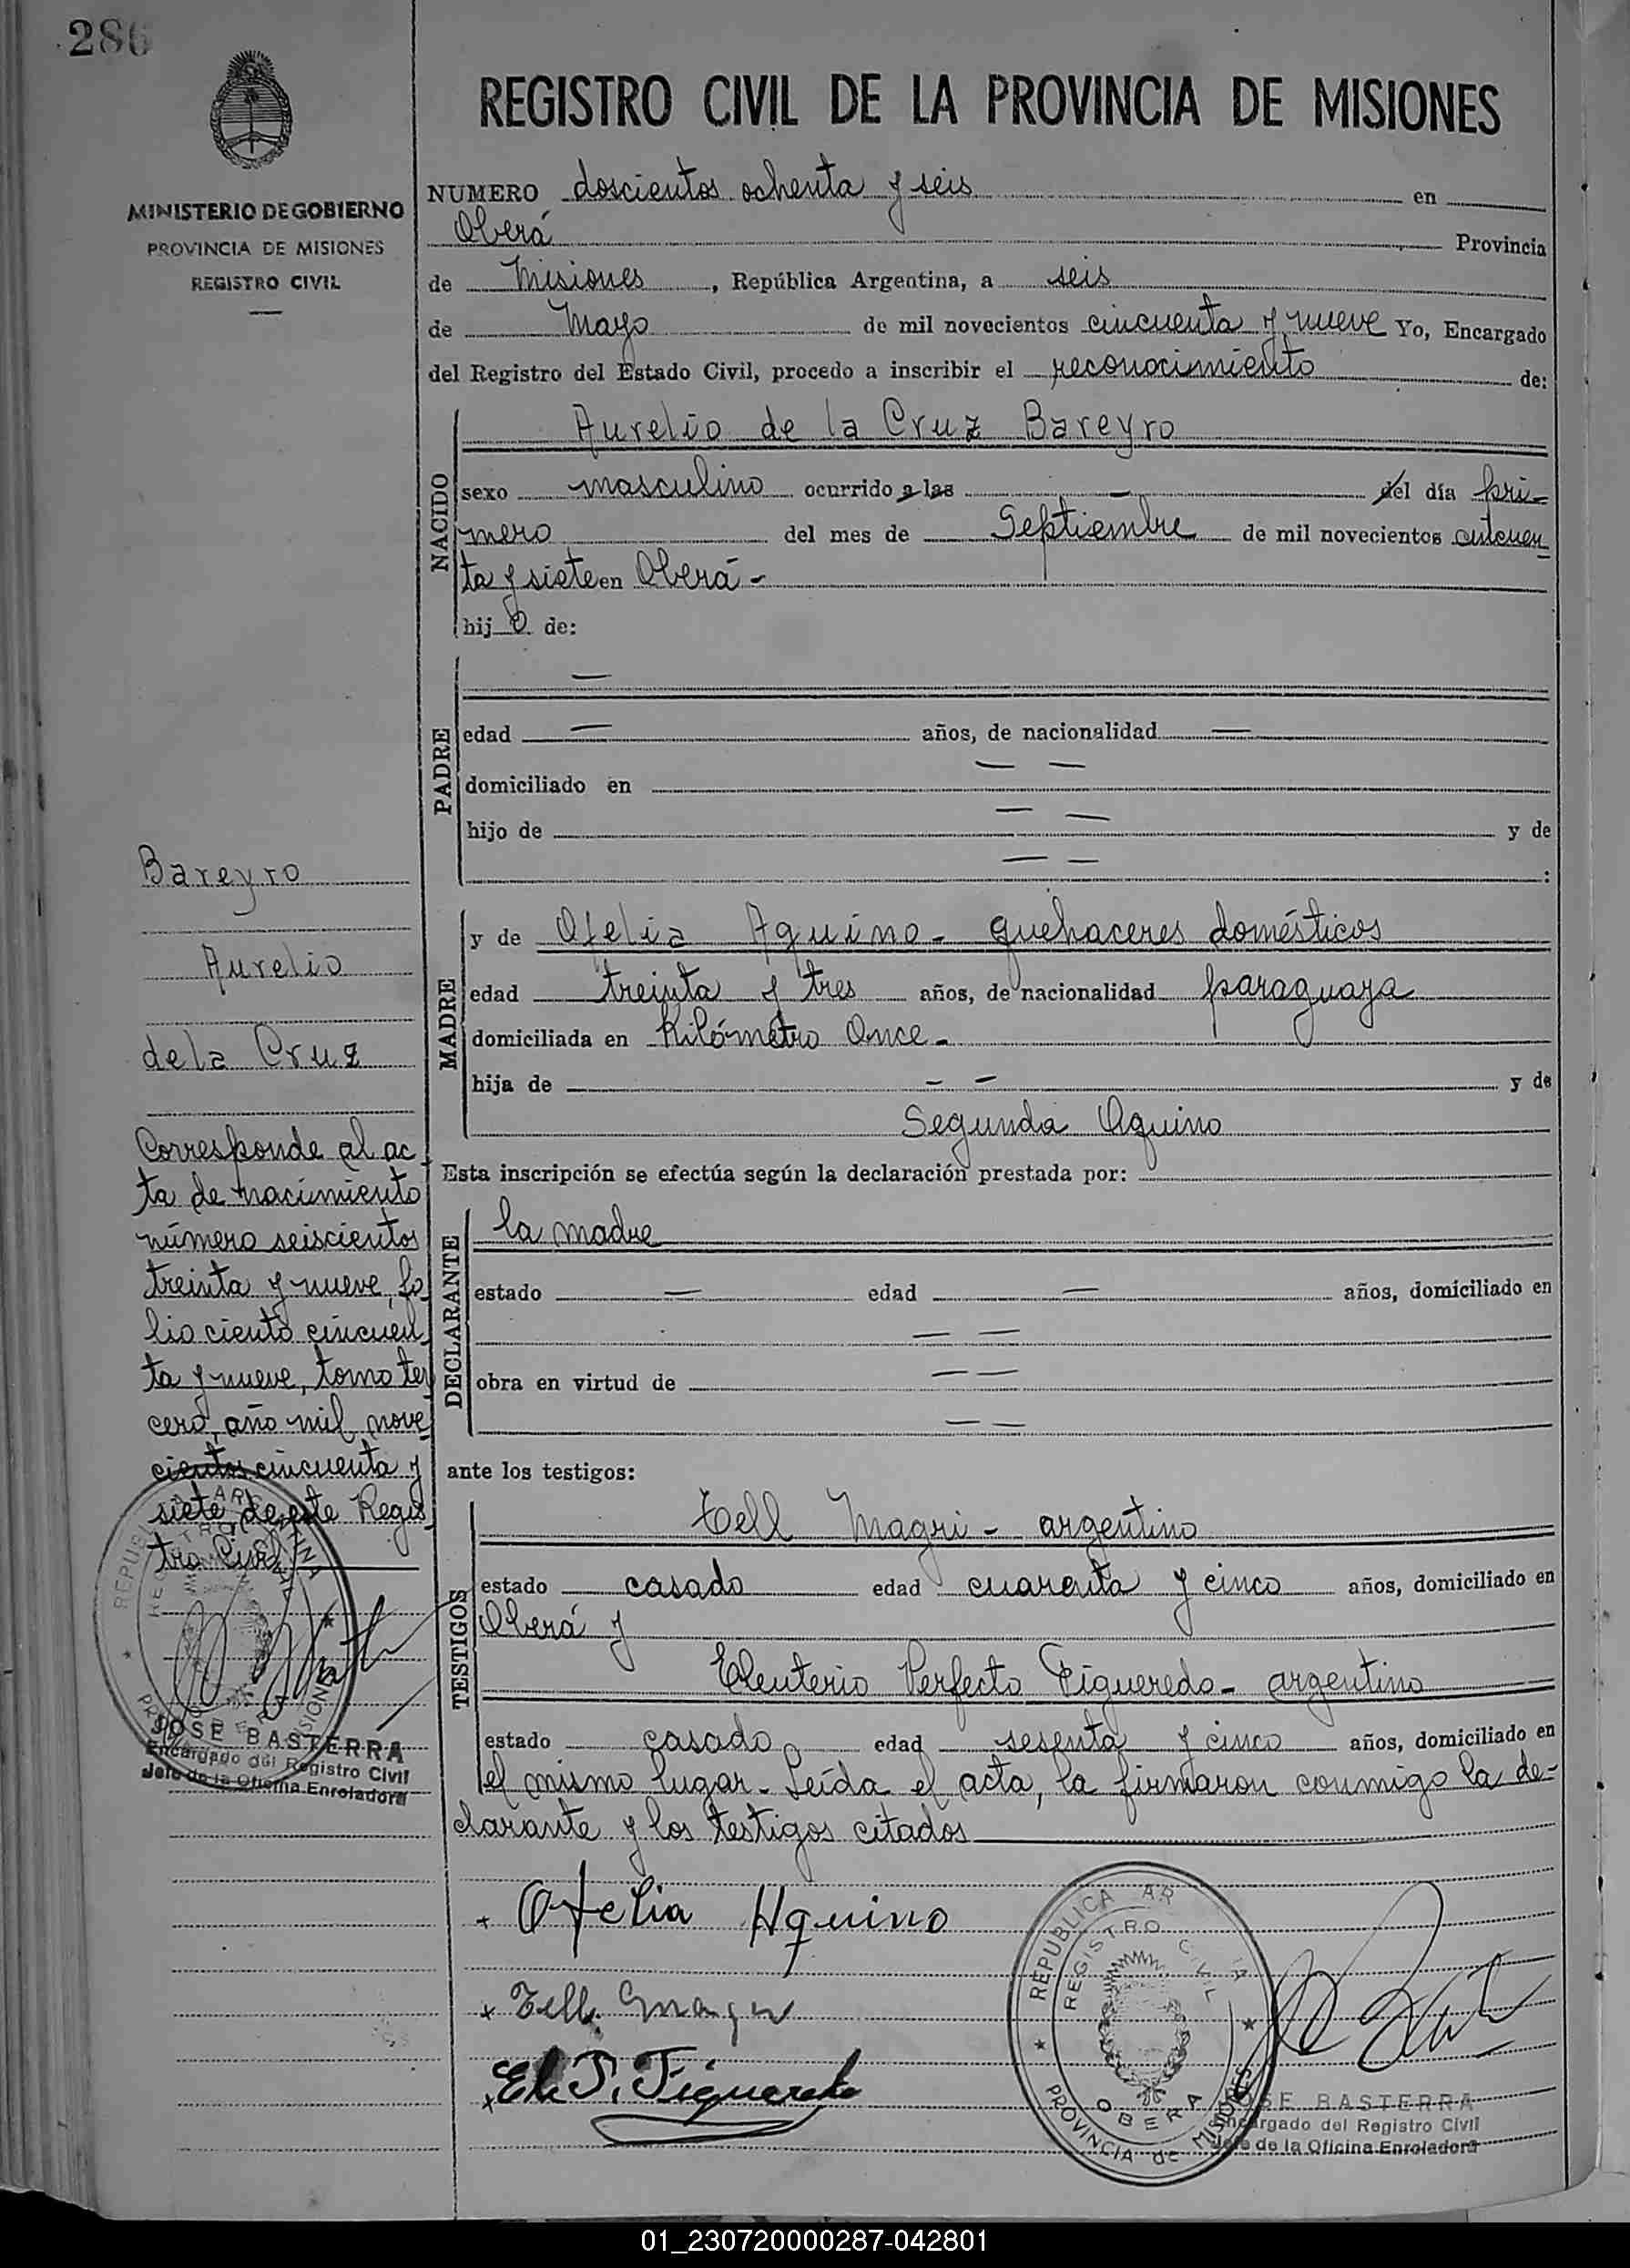 286
MINISTERIO DE GOBIERNO
PROVINCIA DE MISIONES
REGISTRO CIVIL
REGISTRO CIVIL DE LA PROVINCIA DE MISIONES
NUMERO doscientos ochenta y seis en
Oberá Provincia
de Misiones, República Argentina, a seis
de Mayo de mil novecientos cincuenta y nueve Yo, Encargado
del Registro del Estado Civil, procedo a inscribir el reconocimiento de:
NACIDO
Aurelio de la Cruz Bareyro
sexo masculino ocurrido a las - del día pri-
mero del mes de Septiembre de mil novecientos cincuen
ta y siete en Oberá -
hijo de:
PADRE
—
edad — años, de nacionalidad —
domiciliado en — —
hijo de — — y de
— — :
MADRE
y de Ofelia Aquino - quehaceres domésticos
edad treinta y tres años, de nacionalidad paraguaya
domiciliada en Kilómetro Once -
hija de - - y de
Segunda Aquino
Esta inscripción se efectúa según la declaración prestada por:
DECLARANTE
la madre
estado — edad — años, domiciliado en
— —
obra en virtud de — —
— —
ante los testigos:
TESTIGOS
Tell Magri - argentino
estado casado edad cuarenta y cinco años, domiciliado en
Oberá y
Eleuterio Perfecto Figueredo - argentino
estado casado edad sesenta y cinco años, domiciliado en
el mismo lugar - Leída el acta, la firmaron conmigo la de-
clarante y los testigos citados
Bareyro
Aurelio
de la Cruz
Corresponde al ac
ta de nacimiento
número seiscientos
treinta y nueve, fo
lio ciento cincuen
ta y nueve, tomo ter
cero, año mil nove
cientos cincuenta y
siete de este Regis
tro Civil
REPUBLICA ARGENTINA
REGISTRO CIVIL
OBERA
PROVINCIA de MISIONES
JOSE BASTERRA
Encargado del Registro Civil
Jefe de la Oficina Enroladora
+ Ofelia Aquino
+ Tell Magri
+ El. P. Figueredo
REPUBLICA AR
REGISTRO CIVIL
OBERA
PROVINCIA de MISIONES
JOSE BASTERRA
Encargado del Registro Civil
Jefe de la Oficina Enroladora
01_230720000287-042801